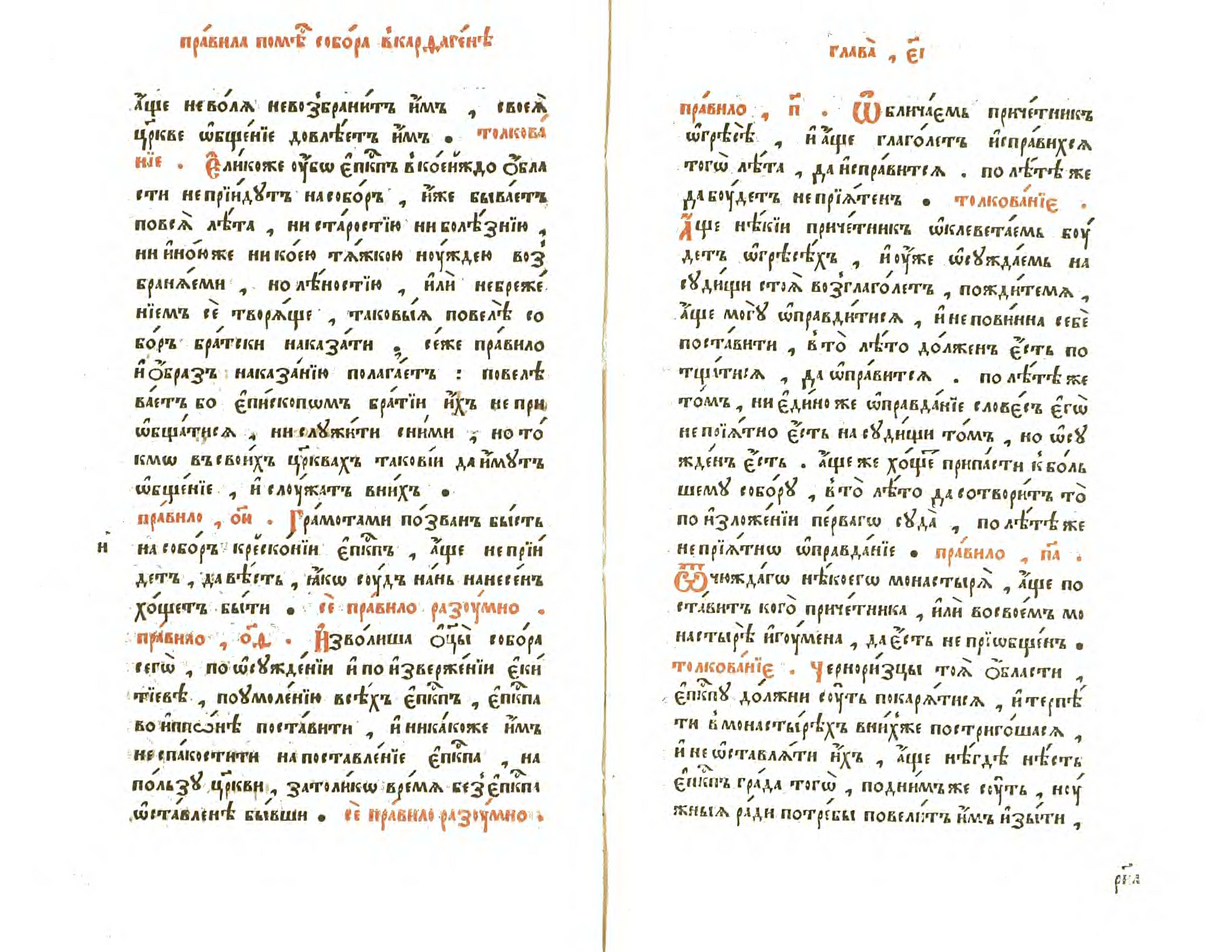 пра́вила помѣ́ст собо́ра в̾кар даге́нѣ
а҆́ще нево́лѧ невозбрани́тъ и҆̀мъ , своеѧ̀
цр҃кве ѻ҆бще́нїе довлѣ́етъ и҆̀мъ . толкова́
нїе . Є҆ли́коже оу҆́бѡ є҆п҃кпъ в̾кое́йждо ѻ҆́бла
сти непрїи́дꙋтъ насобо́ръ , и҆́же быва́етъ
повсѧ̀ лѣ́та , ниста́ростїю ниболѣ́знїю ,
ниино́юже нико́ею тѧ́жкою ноу́ждею воз̾
бранѧ́еми , нолѣ́ностїю , и҆лѝ небреже́
нїемъ сѐ творѧ́ще , таковы́ѧ повелѣ̀ со
бо́ръ бра́тски наказа́ти . се́же пра́вило
и҆ѻ҆́бразъ наказа́нїю полага́етъ : повелѣ
ва́етъ бо є҆пи́скопѡмъ бра́тїи и҆́хъ непри
ѡ҆бща́тисѧ , нислꙋжи́ти сни́ми , ното́
кмѡ въсвои́хъ цр҃квахъ такові́и даи́мꙋтъ
ѡ҆бще́нїе , и҆ слоу́жатъ вни́хъ .
пра́вило , о҃и . Гра́мотами по́званъ бы́сть
и҃
насобо́ръ креско́нїи є҆п҃кпъ , а҆́ще непрїи
детъ , давѣ́сть , ꙗ҆́кѡ соу́дъ на́нь нанесе́нъ
хо́щетъ бы́ти . сѐ пра́вило разоу́мно .
пра́вило , о҃д . И҆зво́лиша ѻ҆ц҃ы̀ собо́ра
сегѡ̀ , поѡ҆сꙋжде́нїи и҆поизверже́нїи є҆кѝ
тїевѣ , поумоле́нїю всѣ́хъ є҆п҃кпъ , є҆п҃кпа
воиппѡ́нѣ поста́вити , и҆ника́коже и҆̀мъ
неспа́костити напоставле́нїе є҆п҃кпа , на
по́льзꙋ цр҃кви , затоли́кѡ вре́мѧ без̾є҆п҃кпа
ѡ҆ста́вленѣ бы́вши . сѐ пра́вило разоу́мно .
глава̀ , є҃і
пра́вило , п҃ . Ѡ҆блича́емь приче́тникъ
ѡ҆грѣсѣ̀ , и҆а҆́ще глаго́летъ и҆спра́вихсѧ
тогѡ̀ лѣ́та , даи҆спра́витсѧ . полѣ́тѣже
дабоу́детъ непрїѧ́тенъ . толкова́нїе .
А҆́ще нѣ́кїи приче́тникъ ѡ҆клевета́емь боу́
детъ ѡ҆грѣсѣ́хъ , и҆оу҆́же ѡ҆сꙋжда́емь на
сꙋди́щи стоѧ̀ возглаго́летъ , пожди́темѧ ,
а҆́ще могꙋ̀ ѡ҆правди́тисѧ , и҆непови́нна себѐ
поста́вити , в̾то̀ лѣ́то до́лженъ є҆́сть по
тщи́тисѧ , даѡ҆пра́витсѧ . полѣ́тѣже
то́мъ , ниє҆ди́ноже ѡ҆правда́нїе слове́съ є҆гѡ̀
непрїѧ́тно є҆́сть насꙋди́щи то́мъ , но ѡ҆сꙋ
жде́нъ є҆́сть . а҆́щеже хо́щет припа́сти к̾бо́ль
шемꙋ собо́рꙋ , в̾то̀ лѣ́то дасотвори́тъ то̀
поизложе́нїи пе́рвагѡ сꙋда̀ , полѣ́тѣже
непрїѧ́тнѡ ѡ҆правда́нїе . пра́вило , п҃а .
Ѿчюжда́гѡ нѣ́коегѡ монастырѧ̀ , а҆́ще по
ста́витъ кого̀ приче́тника , и҆лѝ восвое́мъ мо
настырѣ̀ и҆гоу́мена , дає҆́сть непрїѡ҆бще́нъ .
толкова́нїе . Чернори́зцы тоѧ̀ ѻ҆́бласти ,
є҆п҃кпꙋ до́лжни соу́ть покарѧ́тисѧ , и҆терпѣ́
ти в̾монастырѣ́хъ вни́хже постриго́шасѧ ,
и҆неѡ҆ставлѧ́ти и҆́хъ , а҆́ще нѣ́гдѣ нѣ́сть
є҆п҃кпъ гра́да тогѡ̀ , поднимъже соу́ть , ноу́
жныѧ ра́ди потре́бы повели́тъ и҆̀мъ и҆зы́ти ,
рн҃а